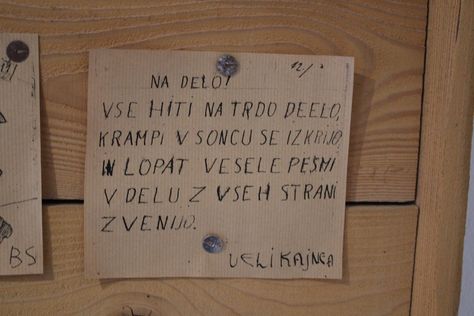 12/
NA DELO!
VSE HITI NA TRDO DEELO,
KRAMPI V SONCU SE IZKRIJO,
IN LOPAT VESELE PESMI
V DELU Z VSEH STRANI
ZVENIJO.
VELIKAJNCA
BS